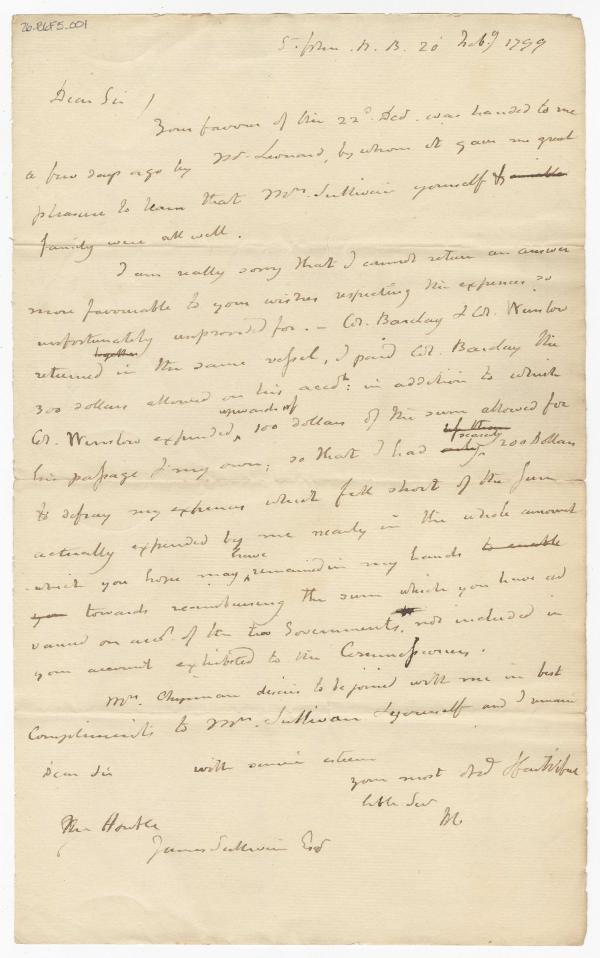 26-R6F5-001
St. John. N. B. 20 Feby 1799
Dear Sir /
Your favour of the 22d. Decr. was handed to me
a few days ago by Mr. Leonard, by whom it gave me great
pleasure to learn that Mrs. Sullivan yourself &
family were all well.
I am really sorry that I cannot return an answer
more favourable to your wishes respecting the expences so
unfortunately unprovided for. — Col. Barclay & Col. Winslow
together
returned in the same vessel, I paid Col. Barclay the
300 dollars allowed on his accot: in addition to which
upwards of
Col. Winslow expended, 100 dollars of the sum allowed for
less than
scarcely
his passage & my own; so that I had only 200 Dollars
to defray my expences which fell short of the sum
actually expended by me nearly in the whole amount
have
which you hope may remained in my hands to enable
you towards reimbursing the sum which you have ad
vanced on acct. of the two Governments, not included in
your account exhibited to the Commissioners.
Mrs. Chipman desires to be joined with me in best
Compliments to Mrs. Sullivan & yourself and I remain
Dear Sir with sincere esteem
your most Obed
hble Servt
The Honble
James Sullivan Esqr